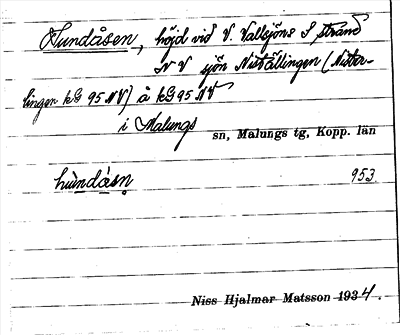 Hundåsen, höjd vid V. Vallsjöns S strand
N V sjön Niställingen (Nister-
lingen kG 95 NV) å kG 95 NV
i Malungs
sn, Malungs tg, Kopp. län
hùndåsn 953
Niss Hjalmar Matsson 1934.